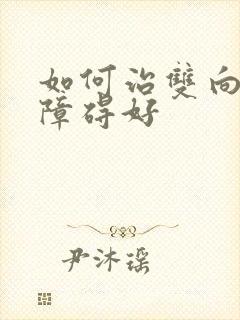 如何治雙向
障碍好
尹沐瑶